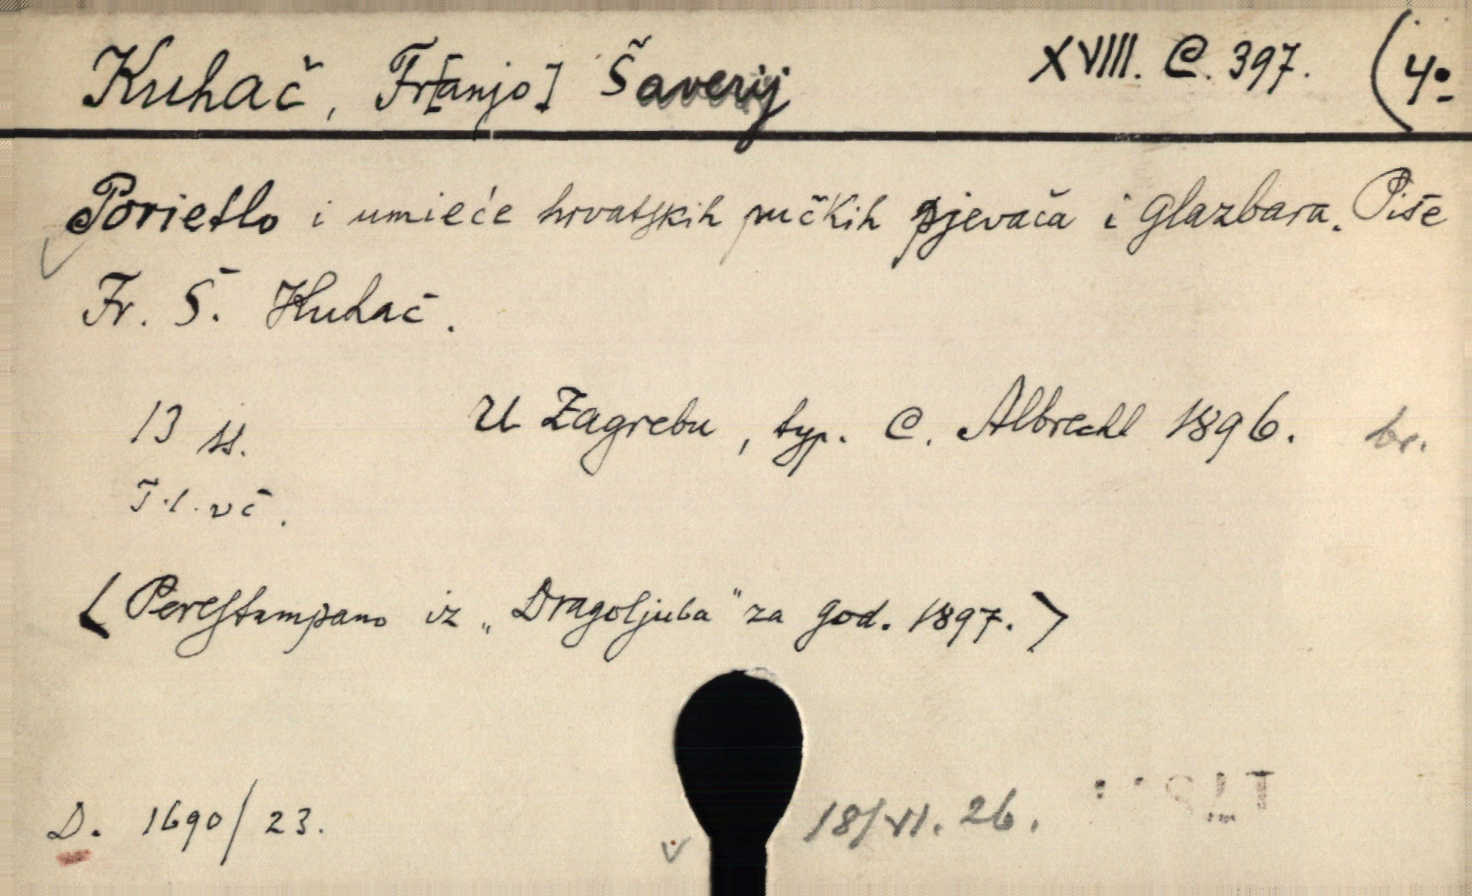 Kuhač, Fr[anjo] Šaverij XVIII. C. 397. (4º
Porietlo i umieće hrvatskih pučkih pjevača i glazbara. Piše
Fr. Š. Kuhač.
13 ss. U Zagrebu, typ. C. Albrecht 1896. br.
T. l. vč.
< Preštampano iz „Dragoljuba" za god. 1897. >
D. 1690/23. 18/VI. 26.